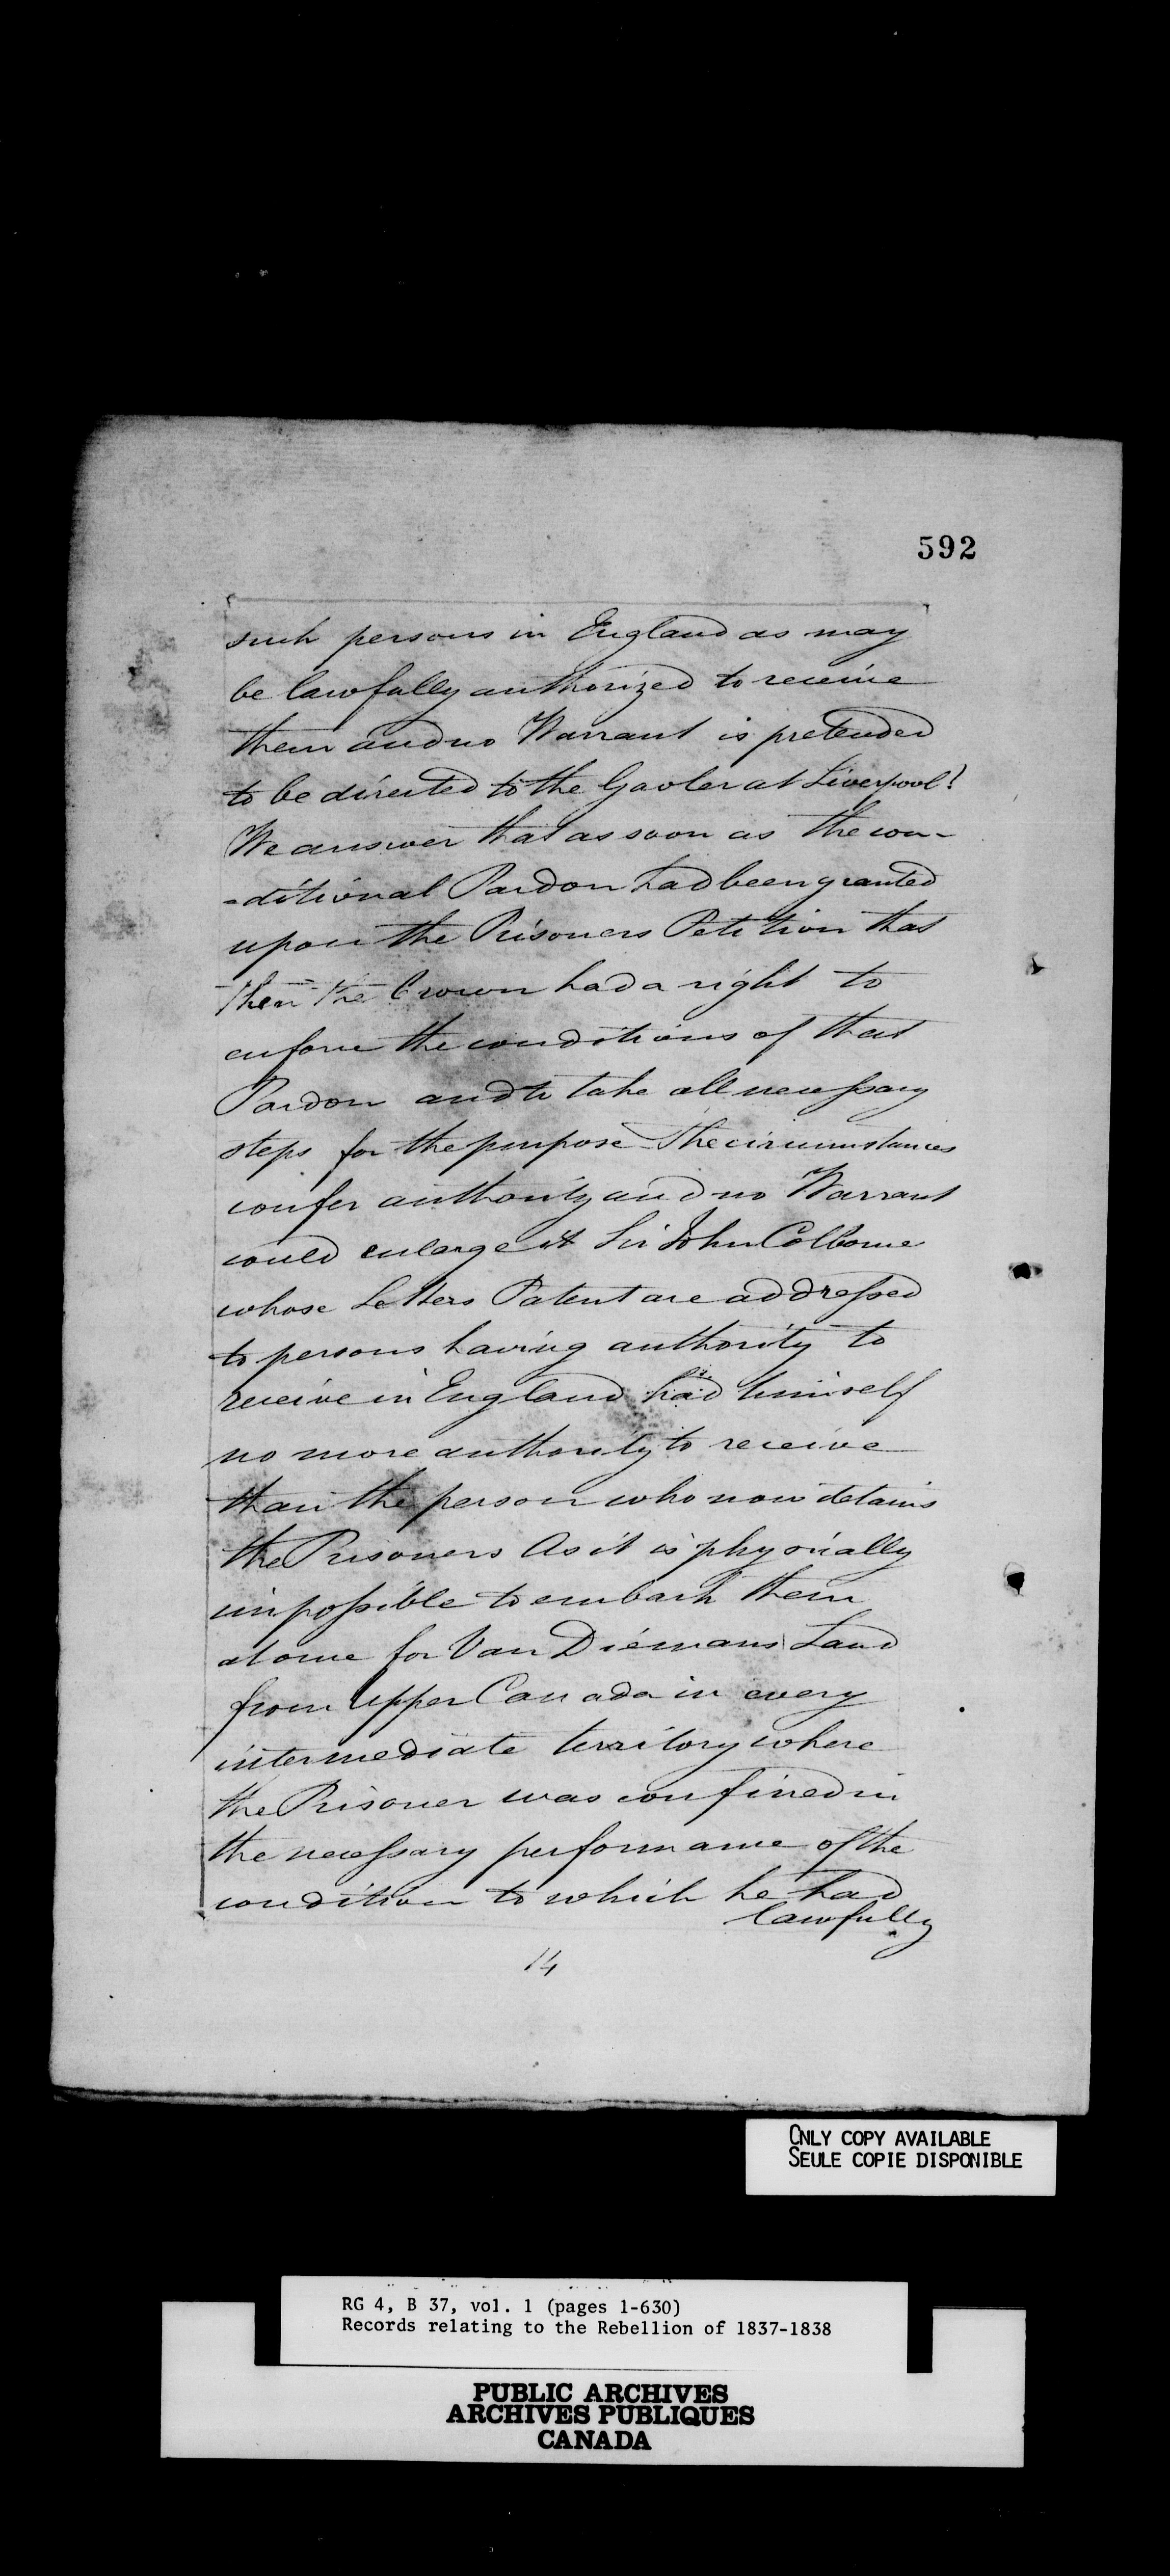 592
such persons in England as may
be lawfully authorized to receive
them and no Warrant is pretended
to be directed to the Gaoler at Liverpool?
We answer that as soon as the con-
-ditional Pardon had been granted
upon the Prisoners Petition that
then the Crown had a right to
enforce the conditions of that
Pardon and to take all necessary
steps for the purpose The circumstances
confer authority and no Warrant
could enlarge it Sir John Colborne
whose Letters Patent are addressed
to persons having authority to
receive in England had himself
no more authority to receive
than the person who now detains
the Prisoners As it is physically
impossible to embark them
at once for Van Diemans Land
from Upper Canada in every
intermediate territory where
the Prisoner was confined in
the necessary performance of the
condition to which he had
lawfully
14
ONLY COPY AVAILABLE
SEULE COPIE DISPONIBLE
RG 4, B 37, vol. 1 (pages 1-630)
Records relating to the Rebellion of 1837-1838
PUBLIC ARCHIVES
ARCHIVES PUBLIQUES
CANADA